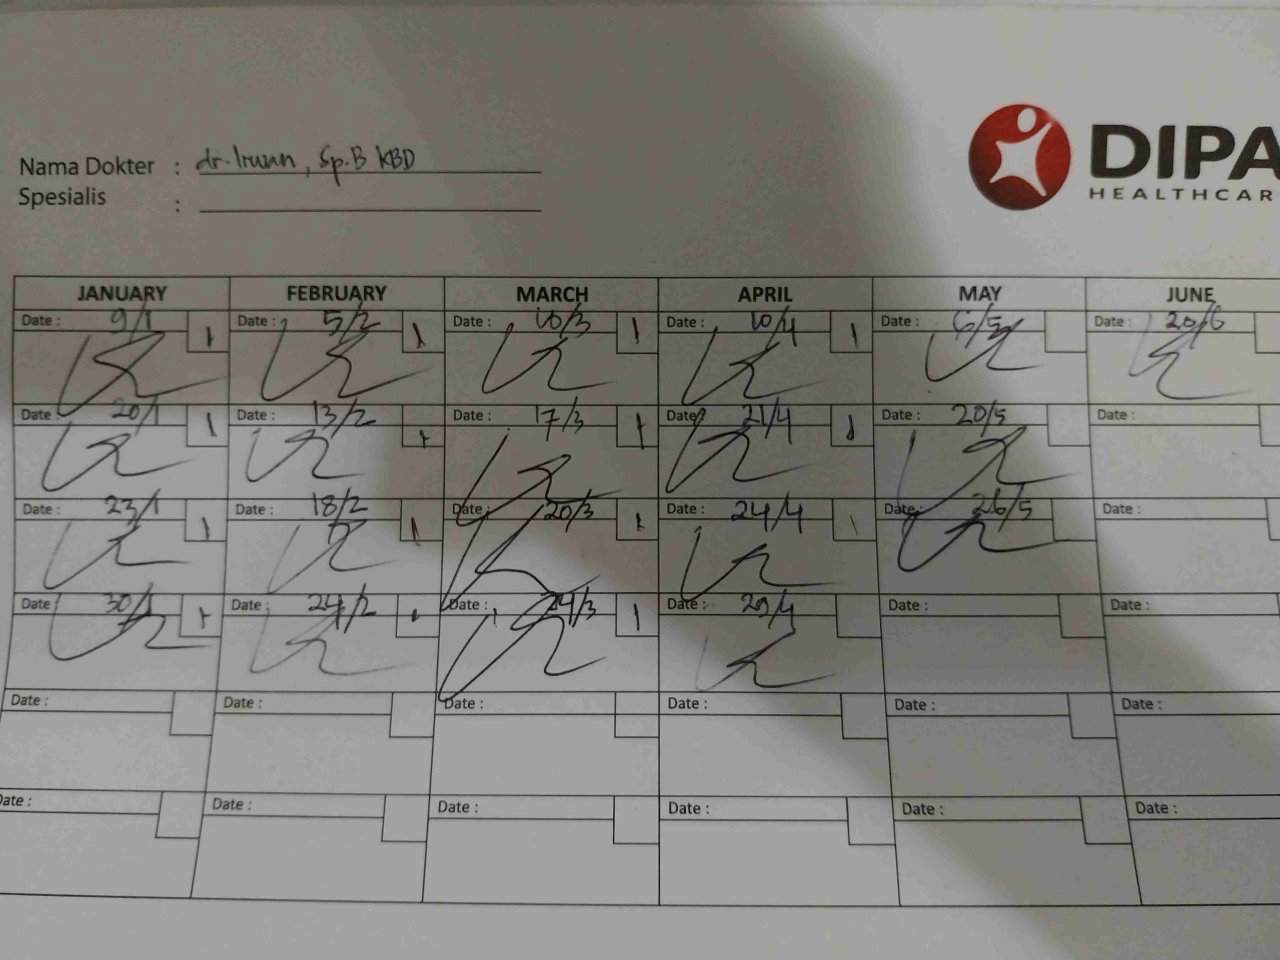 Nama Dokter : dr. Irwan, Sp.B KBD
Spesialis :
DIPA
HEALTHCAR
JANUARY FEBRUARY MARCH APRIL MAY JUNE
Date : 9/1 1 Date : 5/2 1 Date : 10/3 1 Date : 10/4 1 Date : 6/5 Date : 20/6
Date : 20/1 1 Date : 13/2 1 Date : 17/3 1 Date : 21/4 1 Date : 20/5 Date :
Date : 23/1 1 Date : 18/2 1 Date : 20/3 1 Date : 24/4 1 Date : 26/5 Date :
Date : 30/1 1 Date : 24/2 1 Date : 24/3 1 Date : 29/4 Date : Date :
Date : Date : Date : Date : Date : Date :
Date : Date : Date : Date : Date : Date :